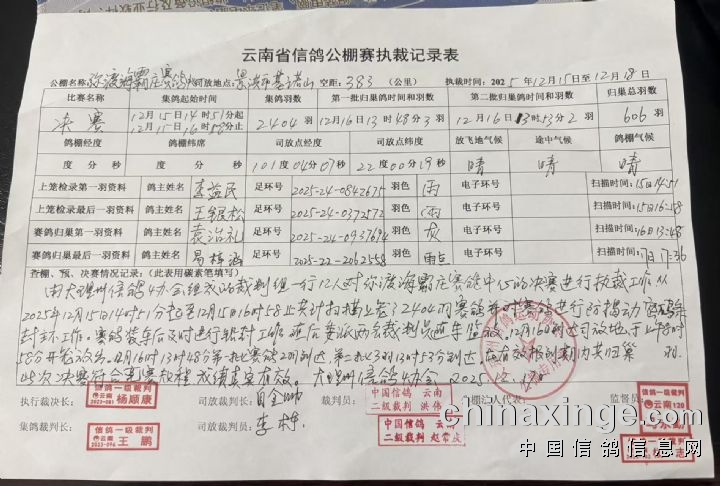 云南省信鸽公棚赛执裁记录表
公棚名称:弥渡海霸庄赛鸽 司放地点: 空距:383(公里) 执裁时间:2025年12月15日至12月18日
比赛名称 集鸽起始时间 集鸽羽数 第一批归巢鸽时间和羽数 第二批归巢鸽时间和羽数 归巢总羽数
决赛 12月15日14时51分起 12月15日16时58分止 2404羽 12月16日13时48分3羽 12月16日13时53分2羽 606羽
鸽棚经度 鸽棚纬度 司放点经度 司放点纬度 放飞地气候 途中气候 鸽棚气候
度 分 秒 度 分 秒 101度04分07秒 22度00分19秒 晴 晴 晴
上笼检录第一羽资料 鸽主姓名 李益民 足环号 2025-24-0842675 羽色 雨 电子环号 扫描时间:15日14:51
上笼检录最后一羽资料 鸽主姓名 王银松 足环号 2025-24-0372572 羽色 雨 电子环号 扫描时间:15日16:58
赛鸽归巢第一羽资料 鸽主姓名 袁治礼 足环号 2025-24-0937694 羽色 灰 电子环号 扫描时间:16日13:48
赛鸽归巢最后一羽资料 鸽主姓名 足环号 2025-22-2062558 羽色 雨点 电子环号 扫描时间:17日17:36
查棚、预、决赛情况记录:(此表用碳素笔填写)
由大理州信鸽协会组成的裁判组一行12人对弥渡海霸庄赛鸽中心的决赛进行执裁工作从
2025年12月15日14时51分起至12月15日16时58止共计扫描上笼2404羽赛鸽
封环工作。赛鸽装车后及时进行铅封工作 两名裁判员随车监放 12月16日到达司放地于上午
58分开笼放飞。12月16日13时48分第一批赛鸽 到达,第二批 羽13时53分到达,在有效报到期内共归巢 羽
此次决赛符合 规程 成绩真实有效。大理州信鸽协会 2025.12.
执行裁决长: 信鸽一级裁判 云南 2023-081 杨顺康 司放裁判长: 裁判员: 中国信鸽 云南 二级裁判 洪伟 公棚法人代表: 监督员: 信鸽一级裁判 云南120
集鸽裁判长: 信鸽一级裁判 云南 2023-096 王鹏 中国信鸽 云南 二级裁判 赵常庆 信鸽一级裁判
www.chinaxinge.com
中国信鸽信息网